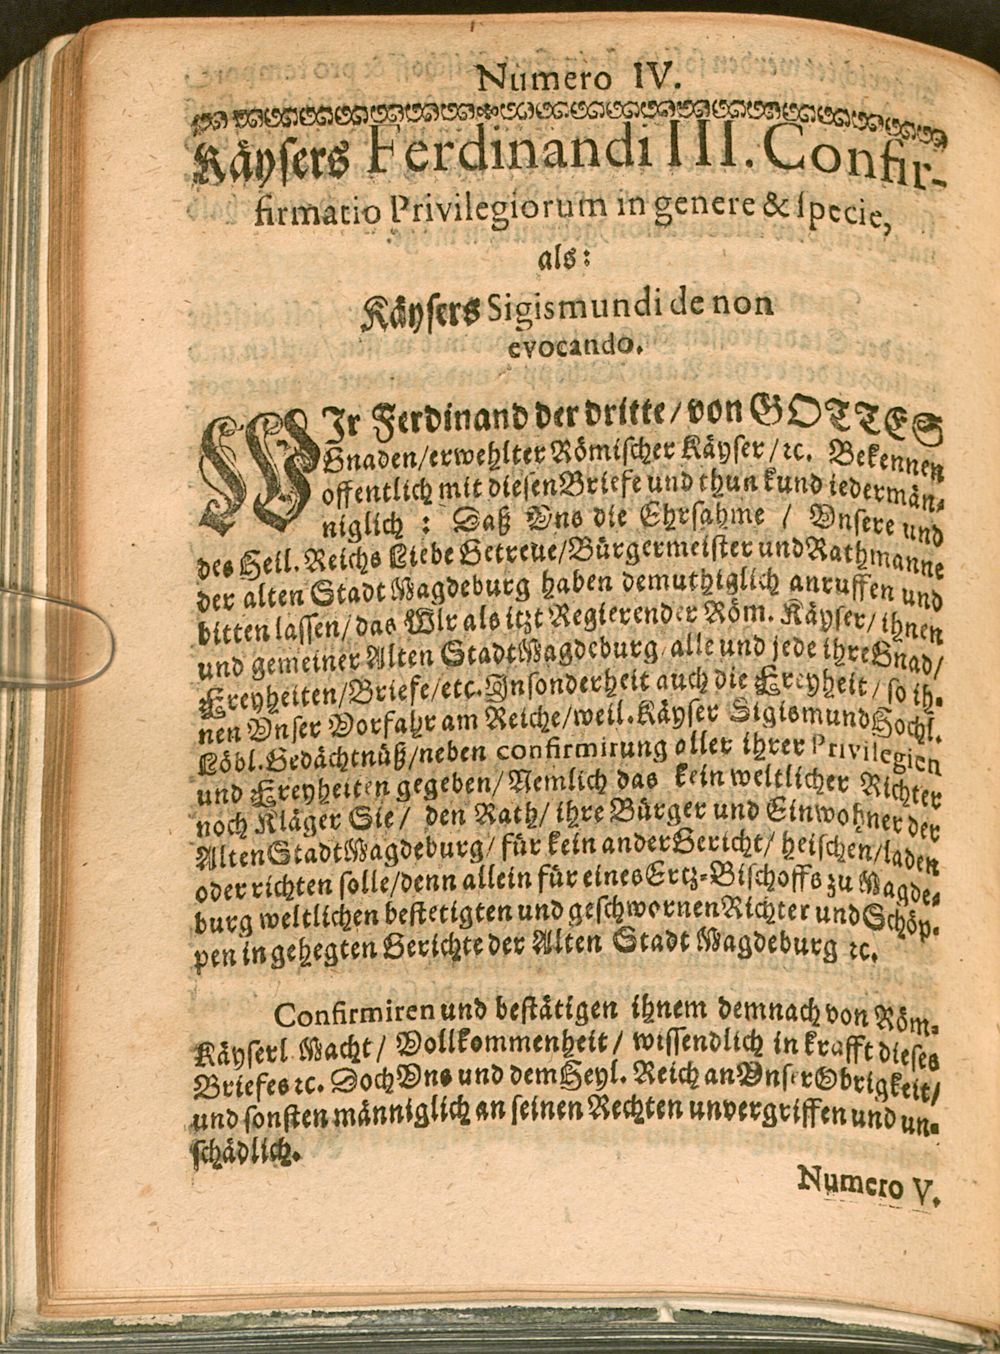 Numero IV.
Käysers Ferdinandi III. Confir-
firmatio Privilegiorum in genere & specie,
als:
Käysers Sigismundi de non
evocando.
WIr Ferdinand der dritte/ von GOTTES
Gnaden/ erwehlter Römischer Käyser/ ꝛc. Bekennen
offentlich mit diesen Briefe und thun kund iedermän-
niglich: Daß Uns die Ehrsahme / Unsere und
des Heil. Reichs Liebe Getreue/ Bürgermeister und Rathmanne
der alten Stadt Magdeburg haben demuthiglich anruffen und
bitten lassen/ das Wir als itzt Regierender Röm. Käyser/ ihnen
und gemeiner Alten Stadt Magdeburg/ alle und jede ihre Gnad/
Freyheiten/ Briefe/ etc. Insonderheit auch die Freyheit/ so ih-
nen Unser Vorfahr am Reiche/ weil. Käyser Sigismund Hochl.
Löbl. Gedächtnüß/ neben confirmirung aller ihrer Privilegien
und Freyheiten gegeben/ Nemlich das kein weltlicher Richter
noch Kläger Sie/ den Rath/ ihre Bürger und Einwohner der
Alten Stadt Magdeburg/ für kein ander Gericht/ heischen/ laden
oder richten solle/ denn allein für eines Ertz-Bischoffs zu Magde-
burg weltlichen bestetigten und geschwornen Richter und Schöp-
pen in gehegten Gerichte der Alten Stadt Magdeburg ꝛc.
Confirmiren und bestätigen ihnem demnach von Röm.
Käyserl. Macht/ Vollkommenheit/ wissendlich in krafft dieses
Briefes ꝛc. Doch Uns und dem Heyl. Reich an Unser Obrigkeit/
und sonsten männiglich an seinen Rechten unvergriffen und un-
schädlich.
Numero V.